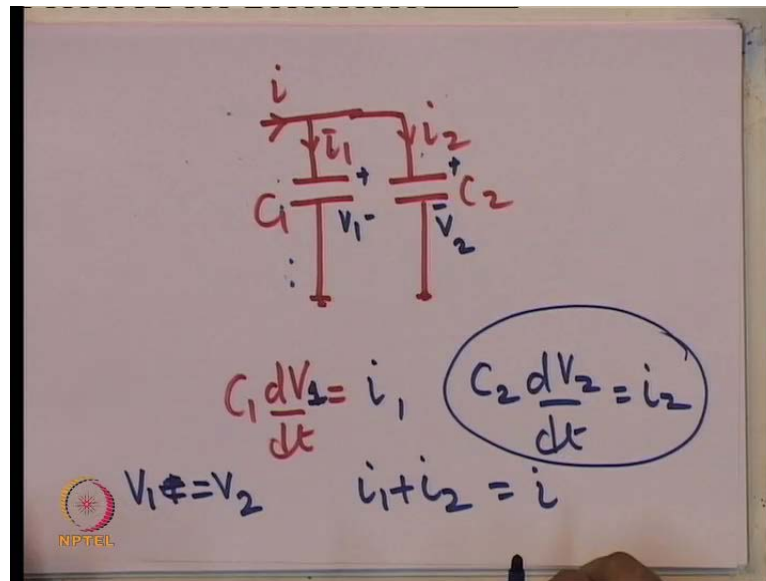 i
i₁ i₂
+ +
C₁ V₁ - - V₂ C₂
C₁ dV₁/dt = i₁, C₂ dV₂/dt = i₂
V₁ = V₂ i₁ + i₂ = i
NPTEL